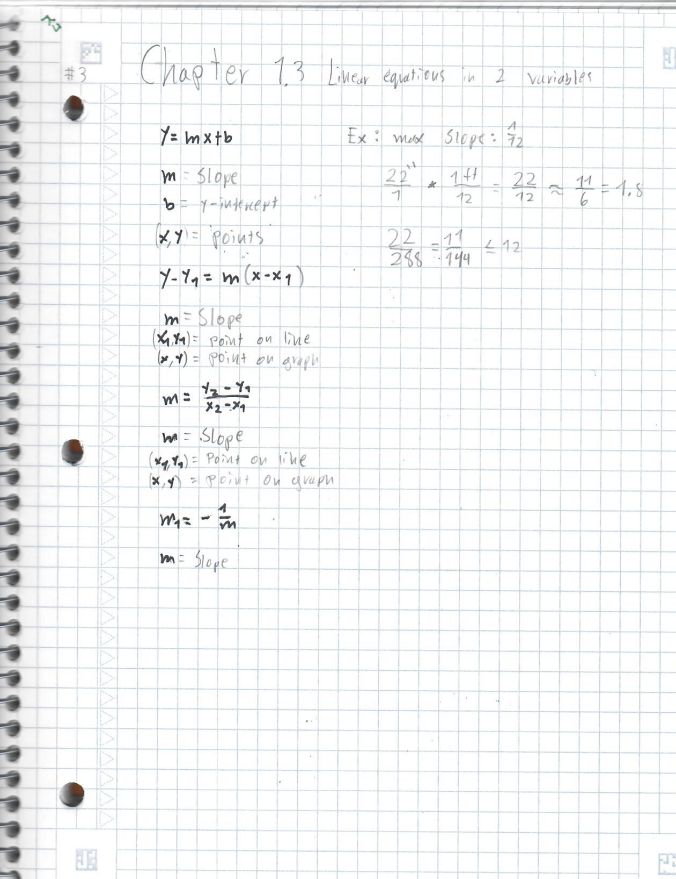 #3
Chapter 1.3 Linear equations in 2 variables
y = mx+b
m = Slope
b = y-intercept
(x,y) = points
y-y₁ = m(x-x₁)
m = Slope
(x₁,y₁) = point on line
(x,y) = point on graph
m = y₂-y₁/x₂-x₁
m = Slope
(x₁,y₁) = Point on line
(x,y) = point on graph
m₁ = -1/m
m = Slope
Ex: max Slope: 1/12
22"/1 * 1ft/12 = 22/12 ≈ 11/6 = 1.8
22/288 = 11/144 ≤ 12